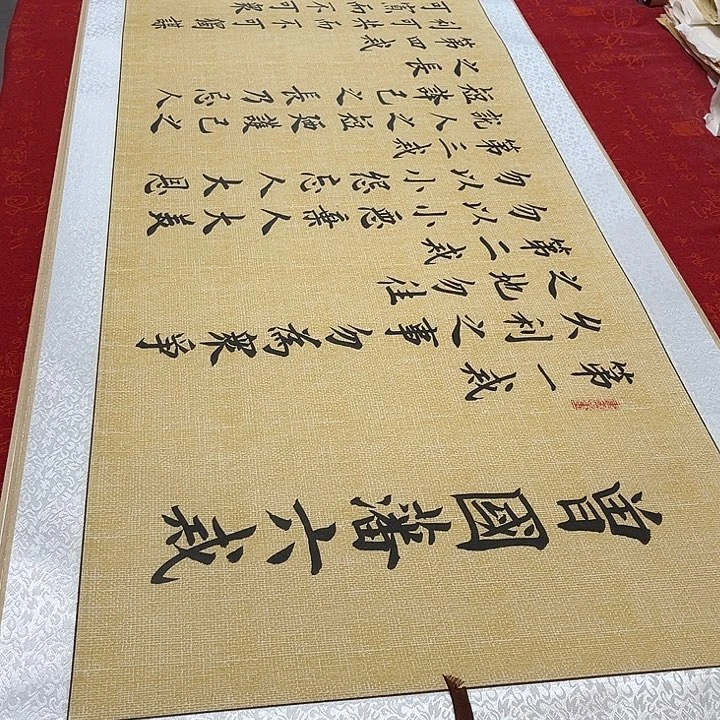 曾國藩六戒
第一戒
久利之事勿為眾爭
之地勿往
第二戒
勿以小惡棄人大美
勿以小怨忘人大恩
第三戒
說人之短廼護己之
短誇己之長乃忌人
之長
第四戒
利可共而不可獨謀
可寡而不可眾